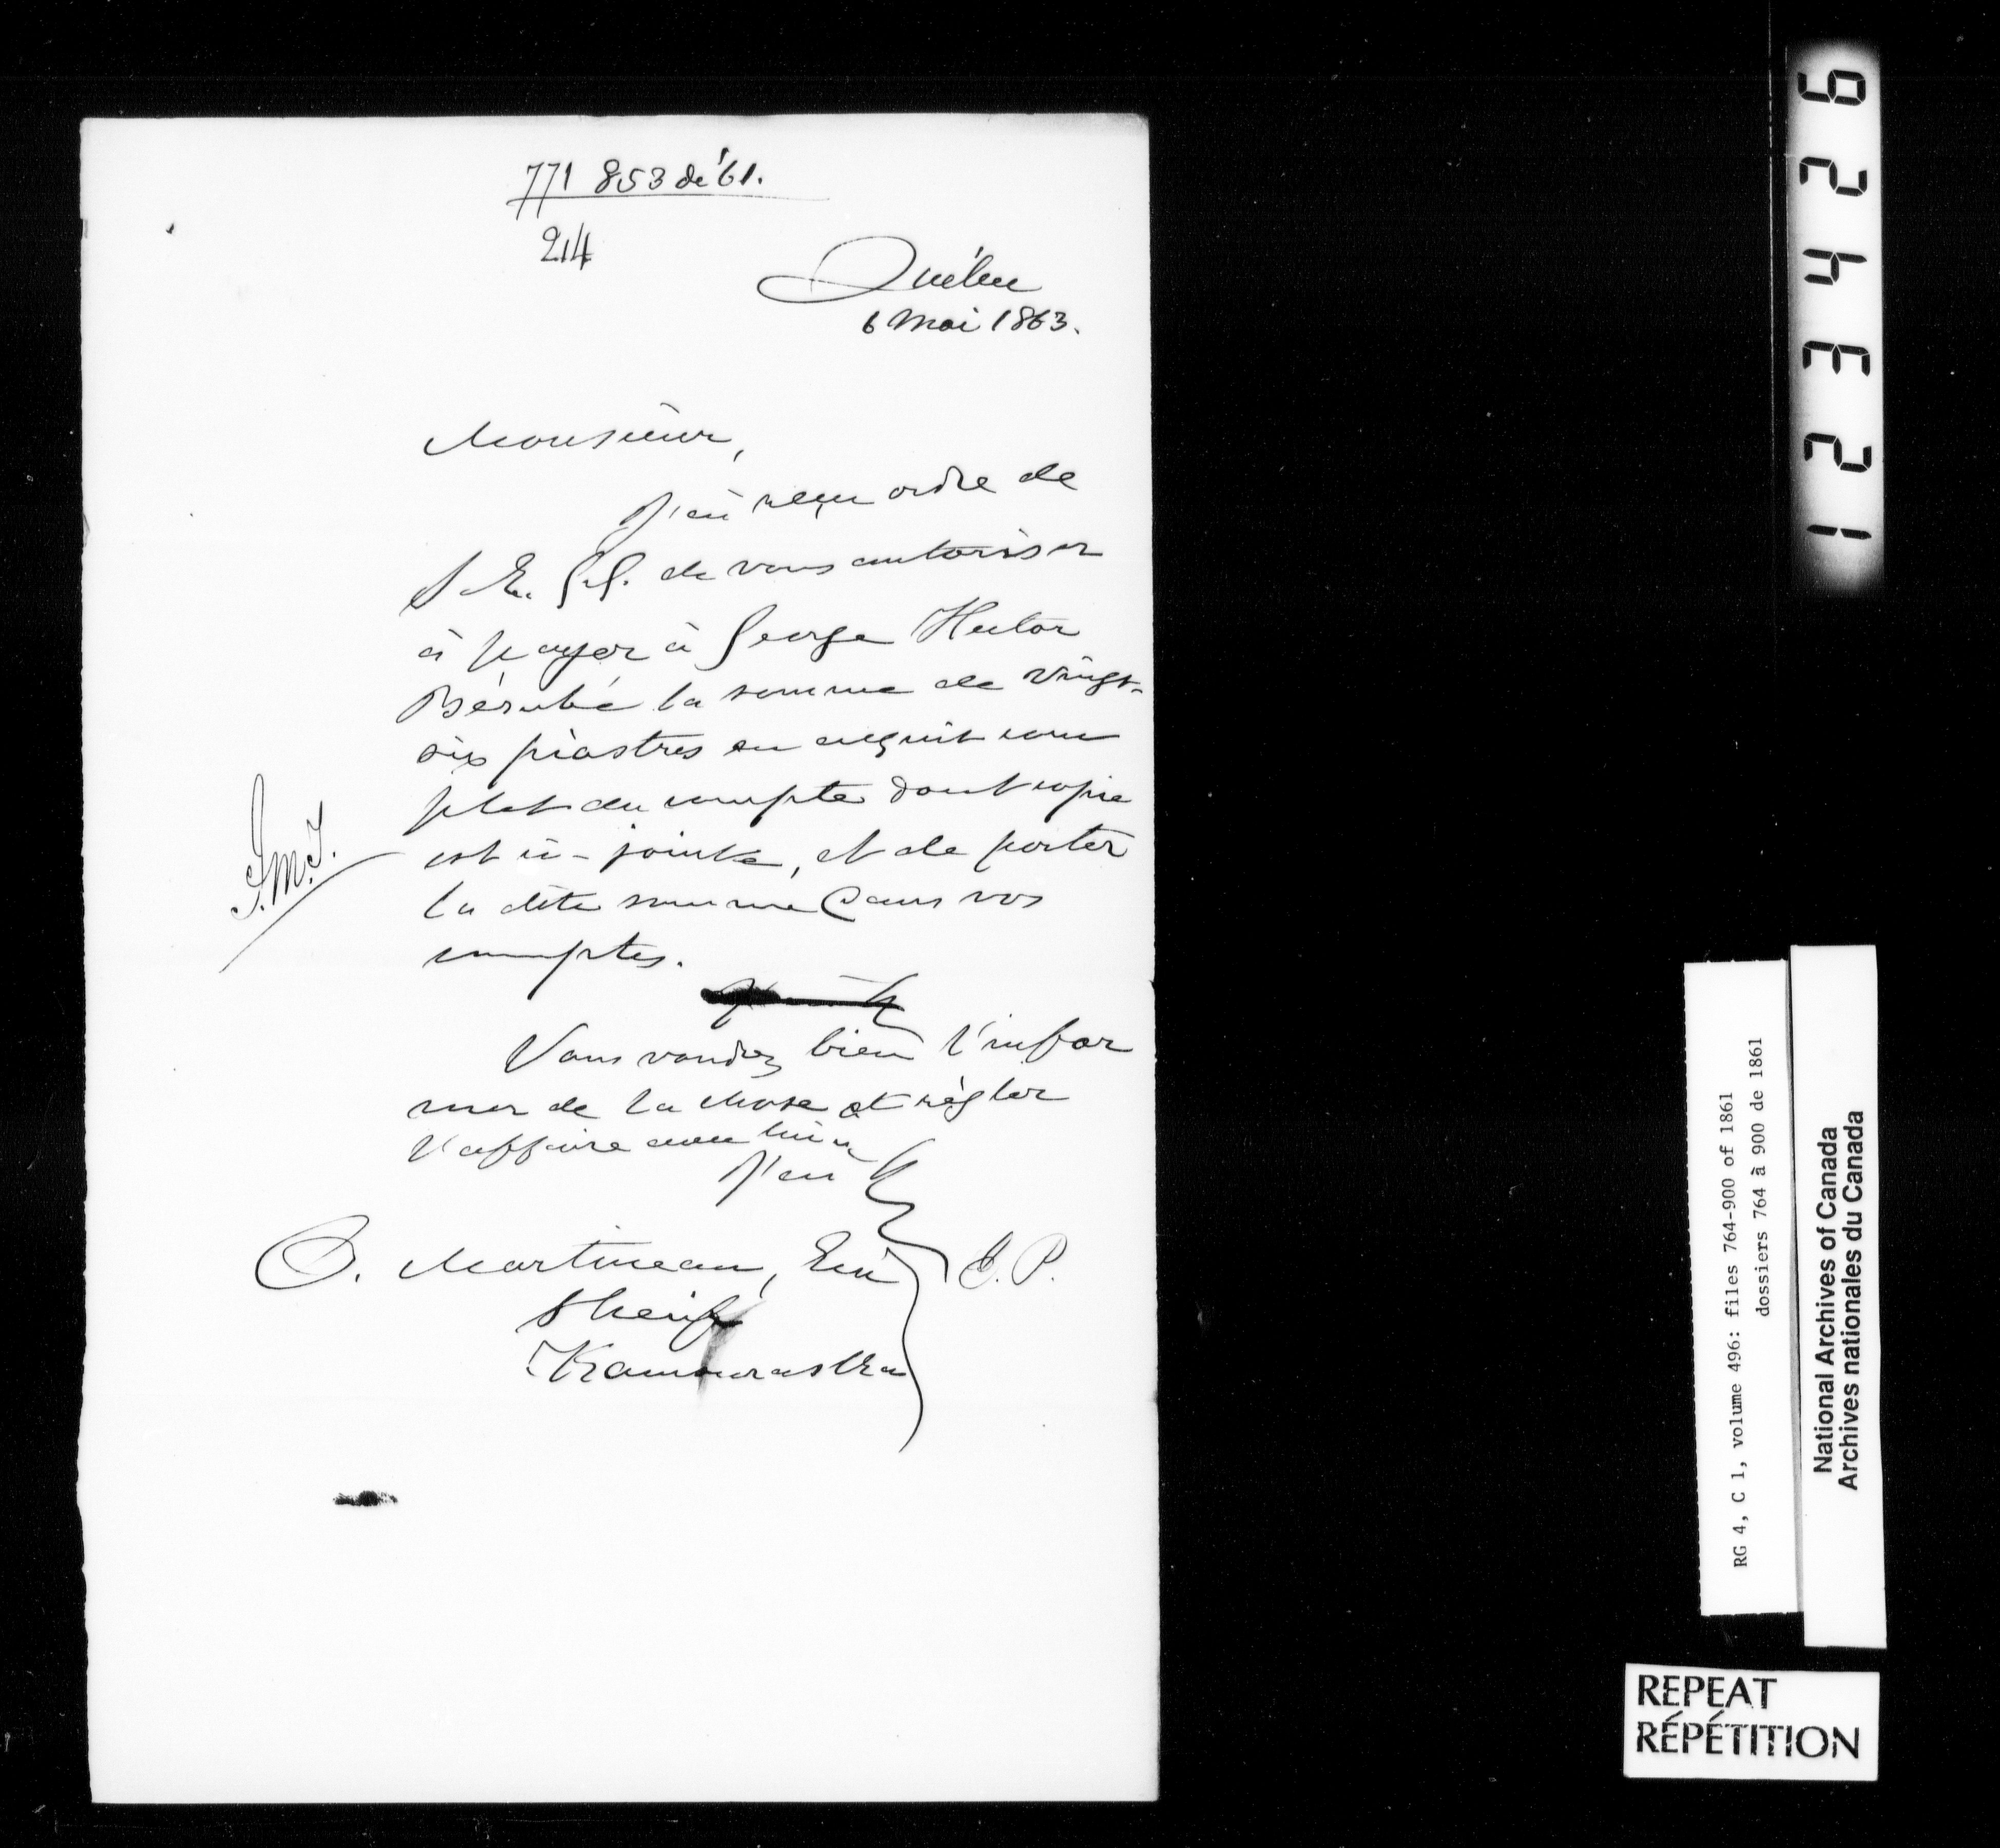 771 853 de '61.
214
Québec
6 Mai 1863.
Monsieur,
J'ai reçu ordre de
S. E. G. G. de vous autoriser
à payer à George Hector
Bérubé la somme de vingt-
six piastres en acquit com
plet du compte dont copie
est ci-jointe, et de porter
la dite somme dans vos
comptes.
J.M.J.
Vous voudrez bien l'infor
mer de la chose et régler
l'affaire avec lui
J'ai
Martineau, Ecr
Sherif
Kamouraska
E. P.
124326
162426
RG 4, C 1, volume 496: files 764-900 of 1861
dossiers 764 à 900 de 1861
National Archives of Canada
Archives nationales du Canada
REPEAT
RÉPÉTITION